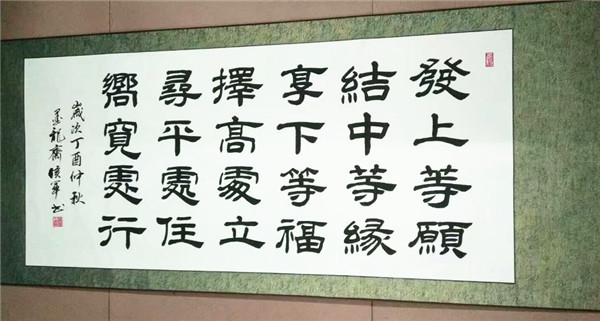 發上等願
結中等緣
享下等福
擇高處立
尋平處住
嚮寬處行
歲次丁酉仲秋
墨龍齋 軍书